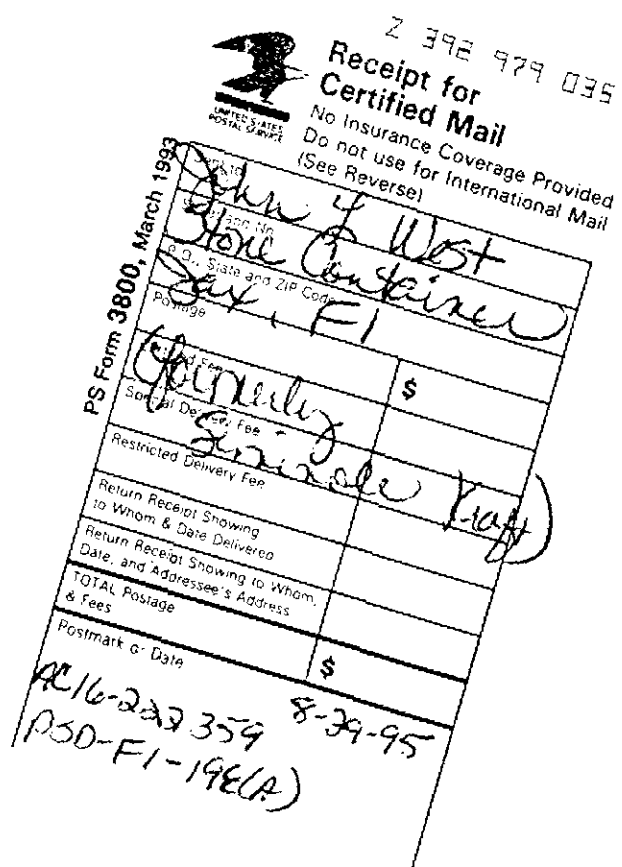 Z 392 979 035
Receipt for
Certified Mail
No Insurance Coverage Provided
Do not use for International Mail
(See Reverse)
UNITED STATES
POSTAL SERVICE
PS Form 3800, March 1993
Sent to
John L West
Street and No.
Stone Container
P.O., State and ZIP Code
Jax, Fl
Postage
$
Certified Fee
(formerly
Special Delivery Fee
Seminole Kraft)
Restricted Delivery Fee
Return Receipt Showing
to Whom & Date Delivered
Return Receipt Showing to Whom,
Date, and Addressee's Address
TOTAL Postage
& Fees
$
Postmark or Date
8-29-95
AC16-222359
PSD-Fl-198(A)